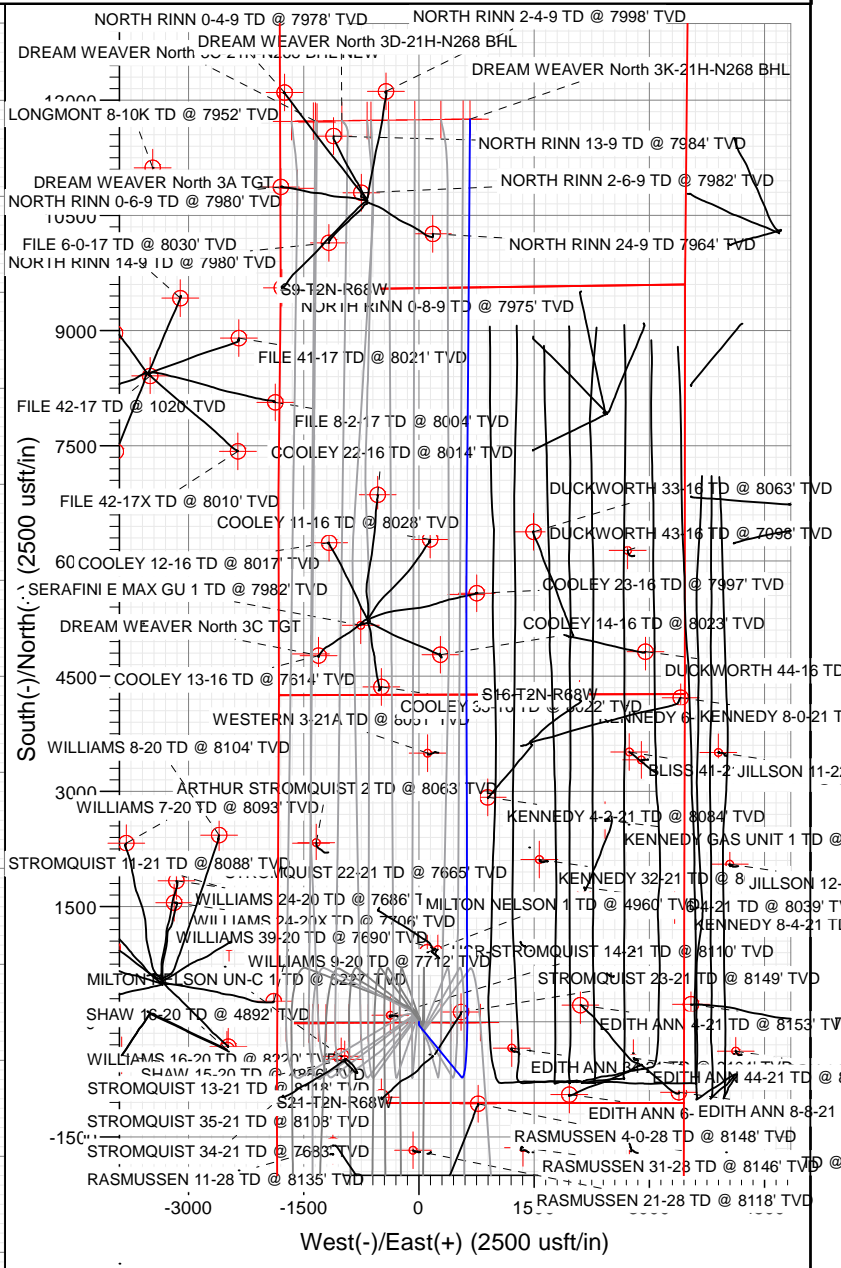 NORTH RINN 0-4-9 TD @ 7978' TVD
NORTH RINN 2-4-9 TD @ 7998' TVD
DREAM WEAVER North 3D-21H-N268 BHL
DREAM WEAVER North
DREAM WEAVER North 3K-21H-N268 BHL
12000
LONGMONT 8-10K TD @ 7952' TVD
NORTH RINN 13-9 TD @ 7984' TVD
DREAM WEAVER North 3A TGT
NORTH RINN 2-6-9 TD @ 7982' TVD
NORTH RINN 0-6-9 TD @ 7980' TVD
10500
FILE 6-0-17 TD @ 8030' TVD
NORTH RINN 24-9 TD 7964' TVD
NORTH RINN 14-9 TD @ 7980' TVD
S9-T2N-R68W
NORTH RINN 0-8-9 TD @ 7975' TVD
9000
FILE 41-17 TD @ 8021' TVD
FILE 42-17 TD @ 1020' TVD
FILE 8-2-17 TD @ 8004' TVD
7500
COOLEY 22-16 TD @ 8014' TVD
FILE 42-17X TD @ 8010' TVD
DUCKWORTH 33-16 TD @ 8063' TVD
COOLEY 11-16 TD @ 8028' TVD
DUCKWORTH 43-16 TD @ 7098' TVD
60
COOLEY 12-16 TD @ 8017' TVD
SERAFINI E MAX GU 1 TD @ 7982' TVD
COOLEY 23-16 TD @ 7997' TVD
DREAM WEAVER North 3C TGT
COOLEY 14-16 TD @ 8023' TVD
4500
COOLEY 13-16 TD @ 7614' TVD
DUCKWORTH 44-16 TD
S16-T2N-R68W
COOLEY
WESTERN 3-21A TD @
KENNEDY 6-
KENNEDY 8-0-21 T
WILLIAMS 8-20 TD @ 8104' TVD
BLISS 41-2
JILLSON 11-22
3000
ARTHUR STROMQUIST 2 TD @ 8063' TVD
WILLIAMS 7-20 TD @ 8093' TVD
KENNEDY 4-2-21 TD @ 8084' TVD
KENNEDY GAS UNIT 1 TD @
STROMQUIST 11-21 TD @ 8088' TVD
22-21 TD @ 7665' TVD
KENNEDY 32-21 TD @ 8
JILLSON 12-
1500
WILLIAMS 24-20 TD @ 7686' T
MILTON NELSON 1 TD @ 4960' TVD
4-21 TD @ 8039' TV
WILLIAMS 24-20X TD @ 7706' TVD
KENNEDY 8-4-21 TD
WILLIAMS 39-20 TD @ 7690' TVD
STROMQUIST 14-21 TD @ 8110' TVD
WILLIAMS 9-20 TD @ 7712' TVD
MILTON NELSON UN-C 1 TD @
STROMQUIST 23-21 TD @ 8149' TVD
SHAW 16-20 TD @ 4892' TVD
EDITH ANN 4-21 TD @ 8153' TV
WILLIAMS 16-20 TD @ 8220' TVD
SHAW 15-20 TD @
EDITH ANN
EDITH ANN 44-21 TD @ 8
STROMQUIST 13-21 TD @ 8118' TVD
S21-T2N-R68W
EDITH ANN 6-
EDITH ANN 8-8-21
STROMQUIST 35-21 TD @ 8108' TVD
-1500
RASMUSSEN 4-0-28 TD @ 8148' TVD
STROMQUIST 34-21 TD @ 7683' TVD
RASMUSSEN 31-28 TD @ 8146' TVD
TD @
RASMUSSEN 11-28 TD @ 8135' TVD
RASMUSSEN 21-28 TD @ 8118' TVD
-3000 -1500 0
West(-)/East(+) (2500 usft/in)